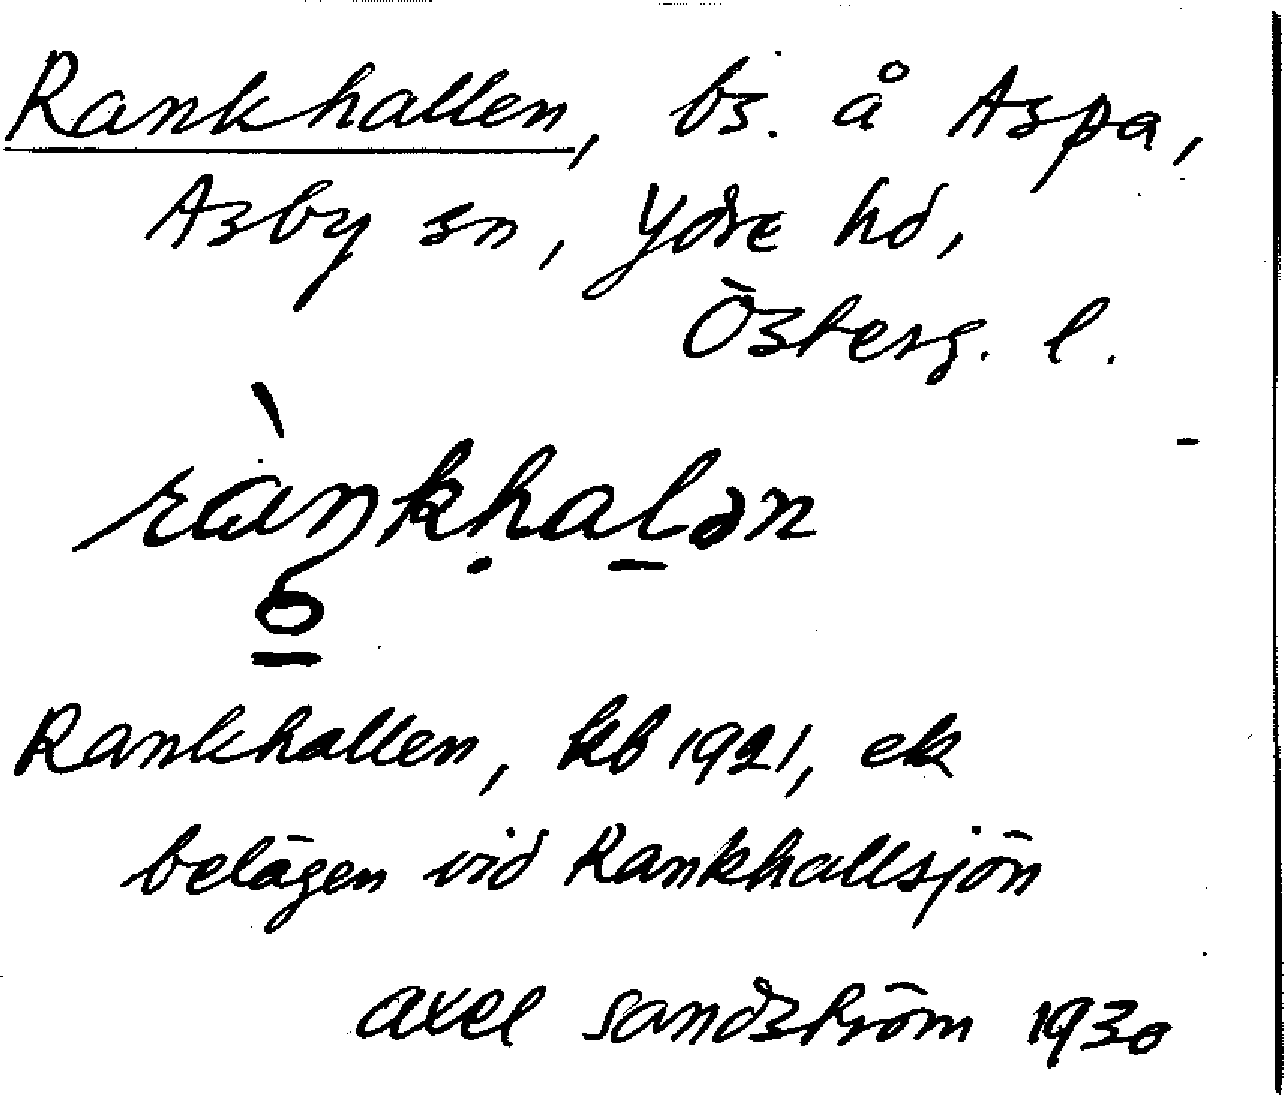 Rankhallen, bs. å Aspa,
Asby sn, Ydre hd,
Österg. l.
ràŋkḥalən
Rankhallen, kb 1921, ek
belägen vid Rankhallsjön
axel sandström 1930